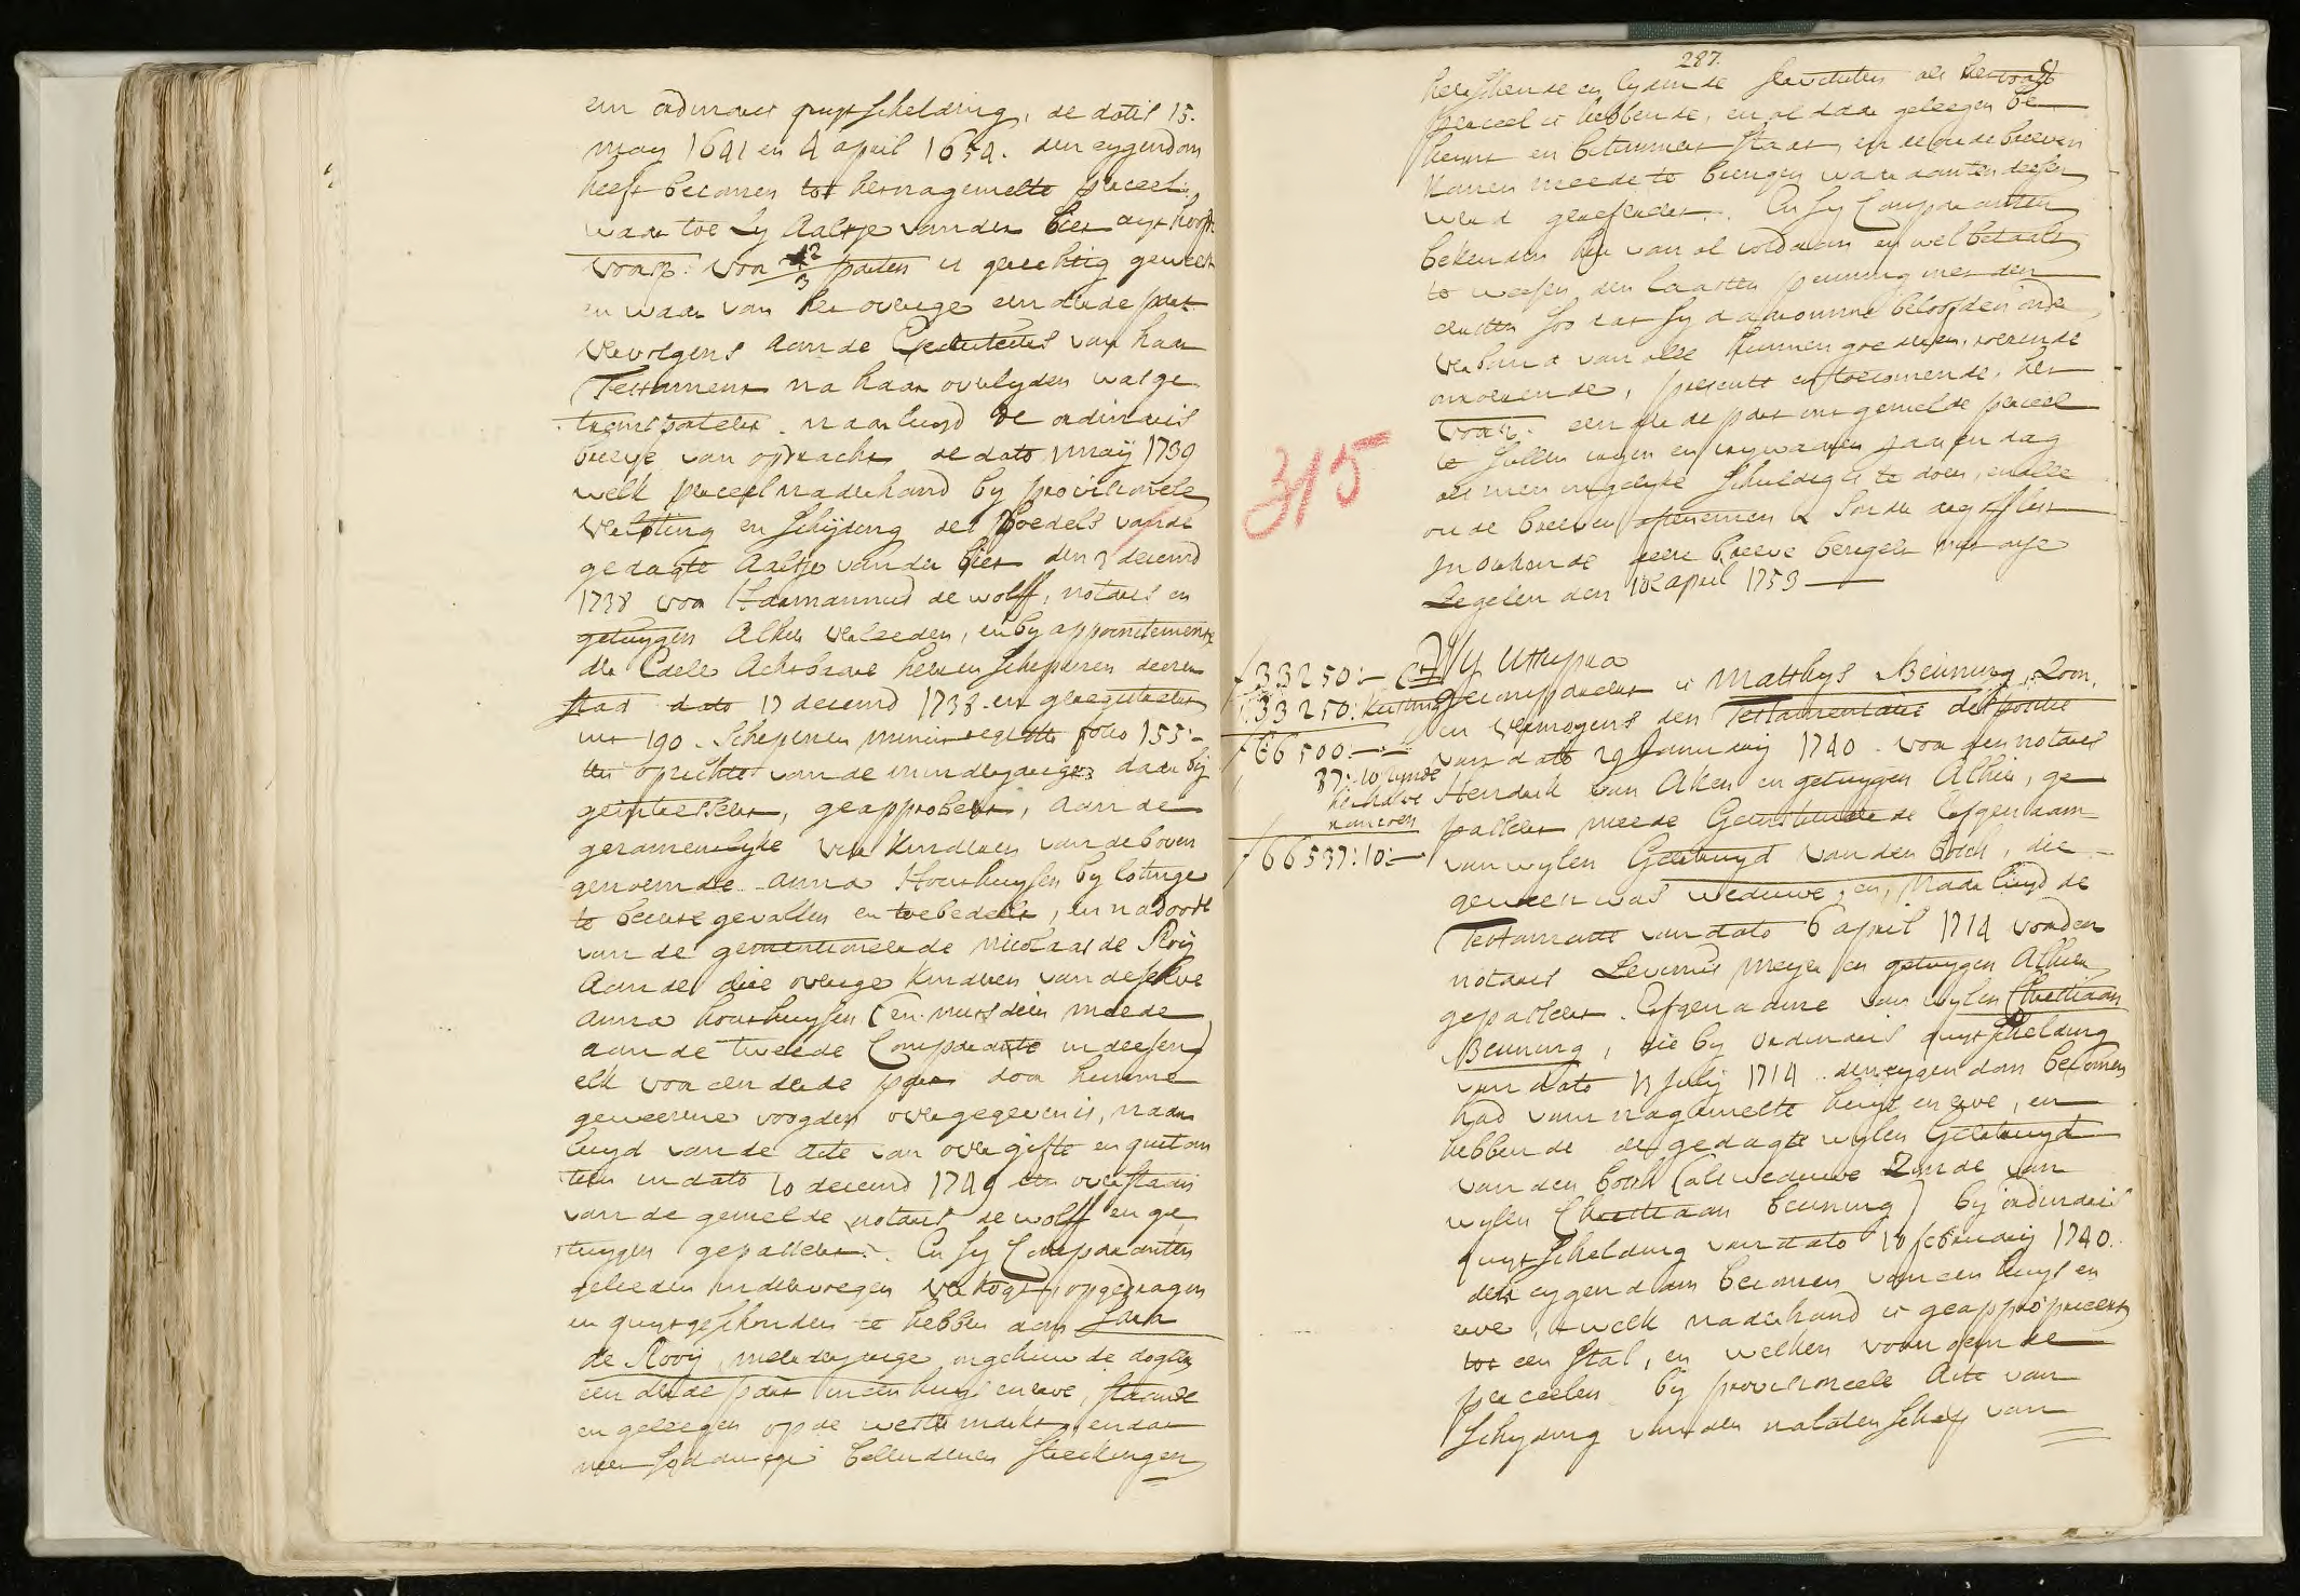 een ordinaris quijtschelding, de datis 15.
may 1641 en 4 april 1654. den eygendom
heeft becomen tot hernagemelte perceel.
waar toe sy Aaltje vander bies uyt hoofde
voorz. voor 2/3 parten is gerechtig geweest
en waar van het overige een derde part
vervolgens aan de Executeurs van haar
Testament na haar overlyden was ge
transporteert. naar luyd de ordinaris
brieve van opdracht de dato 1 maij 1739
welk perceel naderhand by provisionele
verloting en schijding des boedels vande
gedagte Aaltje vander bies den 3 decemb
1738 voor Harmannus de wolff, notaris en
getuygen Alhier verleeden, en by appoinctement
der Edele Achtbare heeren schepenen deeser
stad dato 17 decemb 1738. en geregistreert
int 190. schepenen minuit register folio 155.-
ten opzichte vande minderjarige daar bij
geintresseert, geapprobeert, aan de
gezamentlyke vier kinderen vande boven
genoemde Anna Houthuysen by lotinge
te beurt gevallen en toebedeelt, en na doode
van de gementioneerde Nicolaas de Roij
Aan de drie overige kinderen van deselve
Anna houthuysen (en mitsdien meede
aan de tweede Comparante in deesen)
elk voor een derde part door hunne
geweesene voogden overgegeven is, naar
luyd van de acte van overgifte en quitan
tien in dato 10 decemb 1749 ten overstaan
van de gemelde notaris de wolff en ge
tuygen gepasseert. En sy Comparanten
geleeden in dier voegen verkogt, opgedragen
en quytgeschonden te hebben aan Sara
de Rooij, meerderjarige ongehuwde dogter
een derde part in een huys en erve, staande
en geleegen op de wester markt, en dat
met sodanige belendenen streckingen
287.
heerschende en lydende servituten als het voorsz
perceel is hebbende, en al daar geleegen be
heynt en betimmert staat, en de oude brieven
kunnen meede te brengen waar aan ten deesen
werd gerefereert. En sy Comparanten
bekenden hier van al voldaan en wel betaalt
te weesen den laasten penning met den
eersten soo dat sy daaromme beloofden onder
verband van alle hunnen goederen, roerende
onroerende, presente en toecomende. het
voorz. een derde part int gemelde perceel
te sullen vryen en vrywaren jaar en dag
als men ongelyke schuldig is te doen, en alle
oude brieven afteneemen sonder argelist
In oirkonde deese brieve besegelt met onse
segelen den 18 april 1753
315
f 33250:-
f 33250:
f 66500:-
37:10
f 66537:10:-
Wij utsupra
gecompareert is Matthys Beuning, Zoon,
en vermogens den Testamentaire dispositie
van dato 29 January 1740. voor den notaris
Hendrik van Aken en getuygen Alhier, ge
passeert meede Geinstitueerde erfgenaam
van wylen Geertruyd van den bosch, die
geweest was weduwe, en, naar luyd de
Testamente van dato 6 april 1714 voor den
notaris Levinus Meyer en getuygen Alhier
gepasseert. Erfgename van wylen Christiaan
Beuning, die by ordinaris quytschelding
van dato 13 july 1714 den eygendom becomen
had van nagemelte huys en erve, en
hebbende de gedagte wylen Geertruyd
van den bosch (als weduwe zynde van
wylen Christiaan beuning) by ordinaris
quytschelding van dato 10 february 1740.
den eygendom becomen van een huys en
erve, twelk naderhand is geapproprieert
tot een stal, en welken voornoemde
perceelen bij provisioneele Acte van
Schyding van den nalatenschap van